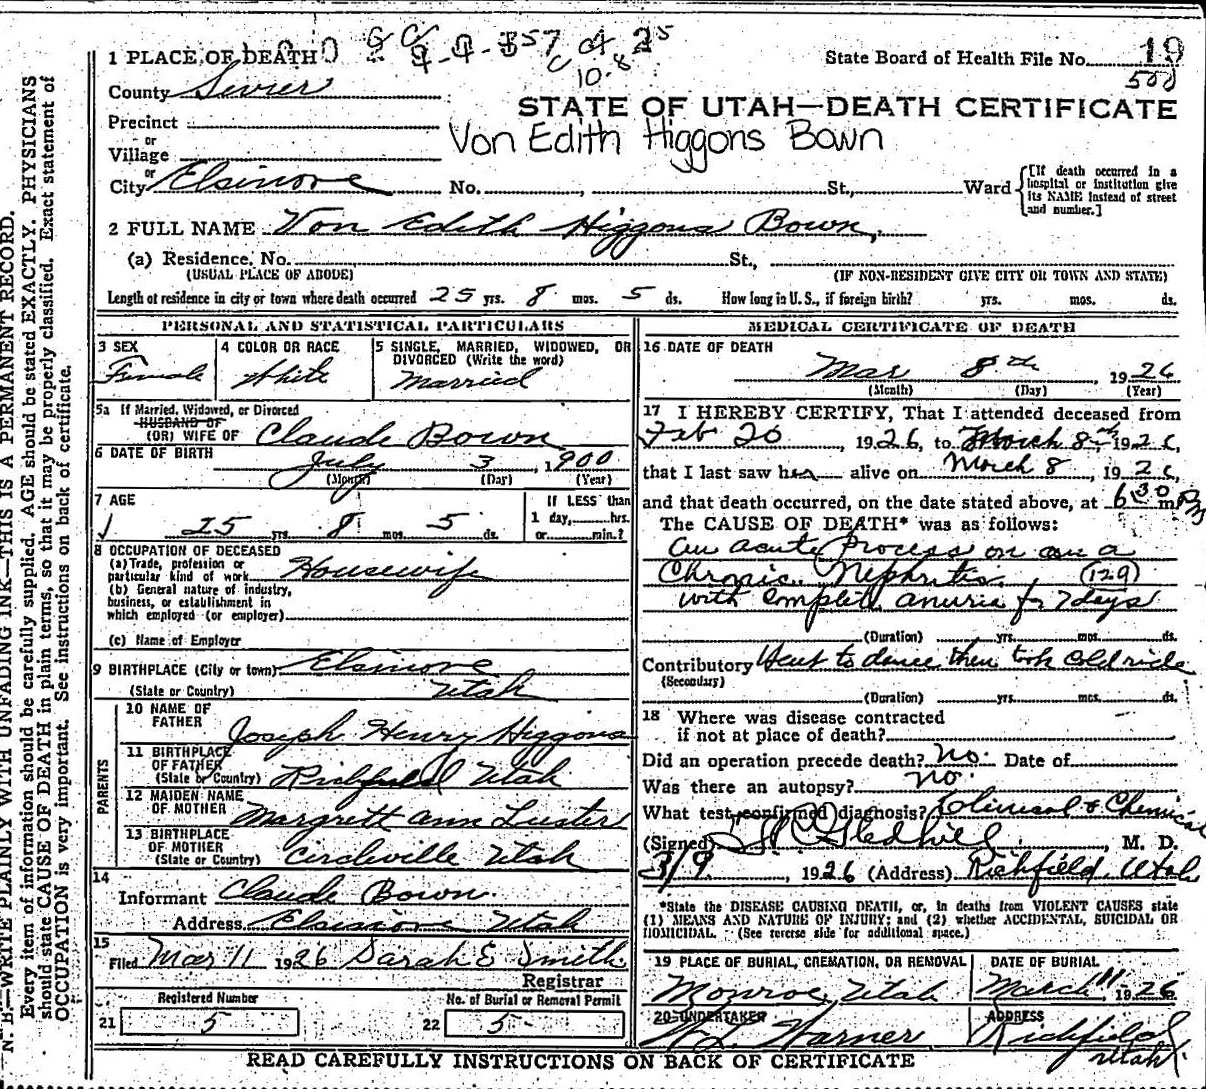 N. B.—WRITE PLAINLY WITH UNFADING INK—THIS IS A PERMANENT RECORD.
Every item of information should be carefully supplied. AGE should be stated EXACTLY. PHYSICIANS
should state CAUSE OF DEATH in plain terms, so that it may be properly classified. Exact statement of
OCCUPATION is very important. See instructions on back of certificate.
1 PLACE OF DEATH
State Board of Health File No. 19
500
10.8
County Sevier
STATE OF UTAH—DEATH CERTIFICATE
Precinct
Von Edith Higgons Bown
or
Village
or
City Elsinore No. , St., Ward
[If death occurred in a
hospital or institution give
its NAME instead of street
and number.]
2 FULL NAME Von Edith Higgons Bown,
(a) Residence, No. St.,
(USUAL PLACE OF ABODE) (IF NON-RESIDENT GIVE CITY OR TOWN AND STATE)
Length of residence in city or town where death occurred 25 yrs. 8 mos. 5 ds. How long in U. S., if foreign birth? yrs. mos. ds.
PERSONAL AND STATISTICAL PARTICULARS
3 SEX
Female
4 COLOR OR RACE
White
5 SINGLE, MARRIED, WIDOWED, OR
DIVORCED (Write the word)
Married
5a If Married, Widowed, or Divorced
HUSBAND OF
(OR) WIFE OF Claude Bown
6 DATE OF BIRTH July 3, 1900
(Month) (Day) (Year)
7 AGE
25 yrs. 8 mos. 5 ds.
If LESS than
1 day, hrs.
or min.?
8 OCCUPATION OF DECEASED
(a) Trade, profession or
particular kind of work Housewife
(b) General nature of industry,
business, or establishment in
which employed (or employer)
(c) Name of Employer
9 BIRTHPLACE (City or town) Elsinore
(State or Country) Utah
PARENTS
10 NAME OF
FATHER Joseph Henry Higgons
11 BIRTHPLACE
OF FATHER
(State or Country) Richfield Utah
12 MAIDEN NAME
OF MOTHER Margrett Ann Luster
13 BIRTHPLACE
OF MOTHER
(State or Country) Circleville Utah
14
Informant Claude Bown
Address Elsinore Utah
15
Filed Mar 11 1926 Sarah E Smith
Registrar
Registered Number
21 5
No. of Burial or Removal Permit
22 5
MEDICAL CERTIFICATE OF DEATH
16 DATE OF DEATH
Mar 8th, 1926
(Month) (Day) (Year)
17 I HEREBY CERTIFY, That I attended deceased from
Feb 20, 1926, to March 8th, 1926,
that I last saw her alive on March 8, 1926,
and that death occurred, on the date stated above, at 6 30 m. Pm
The CAUSE OF DEATH* was as follows:
An acute process on on a
Chronic Nephritis (129)
with complete anuria for 7 days
(Duration) yrs. mos. ds.
Contributory Went to dance then took cold ride
(Secondary)
(Duration) yrs. mos. ds.
18 Where was disease contracted
if not at place of death?
Did an operation precede death? No. Date of
Was there an autopsy? no.
What test confirmed diagnosis? Clinical & Chemical
(Signed) , M. D.
3/9, 1926 (Address) Richfield, Utah
*State the DISEASE CAUSING DEATH, or, in deaths from VIOLENT CAUSES state
(1) MEANS AND NATURE OF INJURY; and (2) whether ACCIDENTAL, SUICIDAL OR
HOMICIDAL. (See reverse side for additional space.)
19 PLACE OF BURIAL, CREMATION, OR REMOVAL
Monroe, Utah
DATE OF BURIAL
March 11 1926
20 UNDERTAKER
Warner
ADDRESS
Richfield
Utah
READ CAREFULLY INSTRUCTIONS ON BACK OF CERTIFICATE